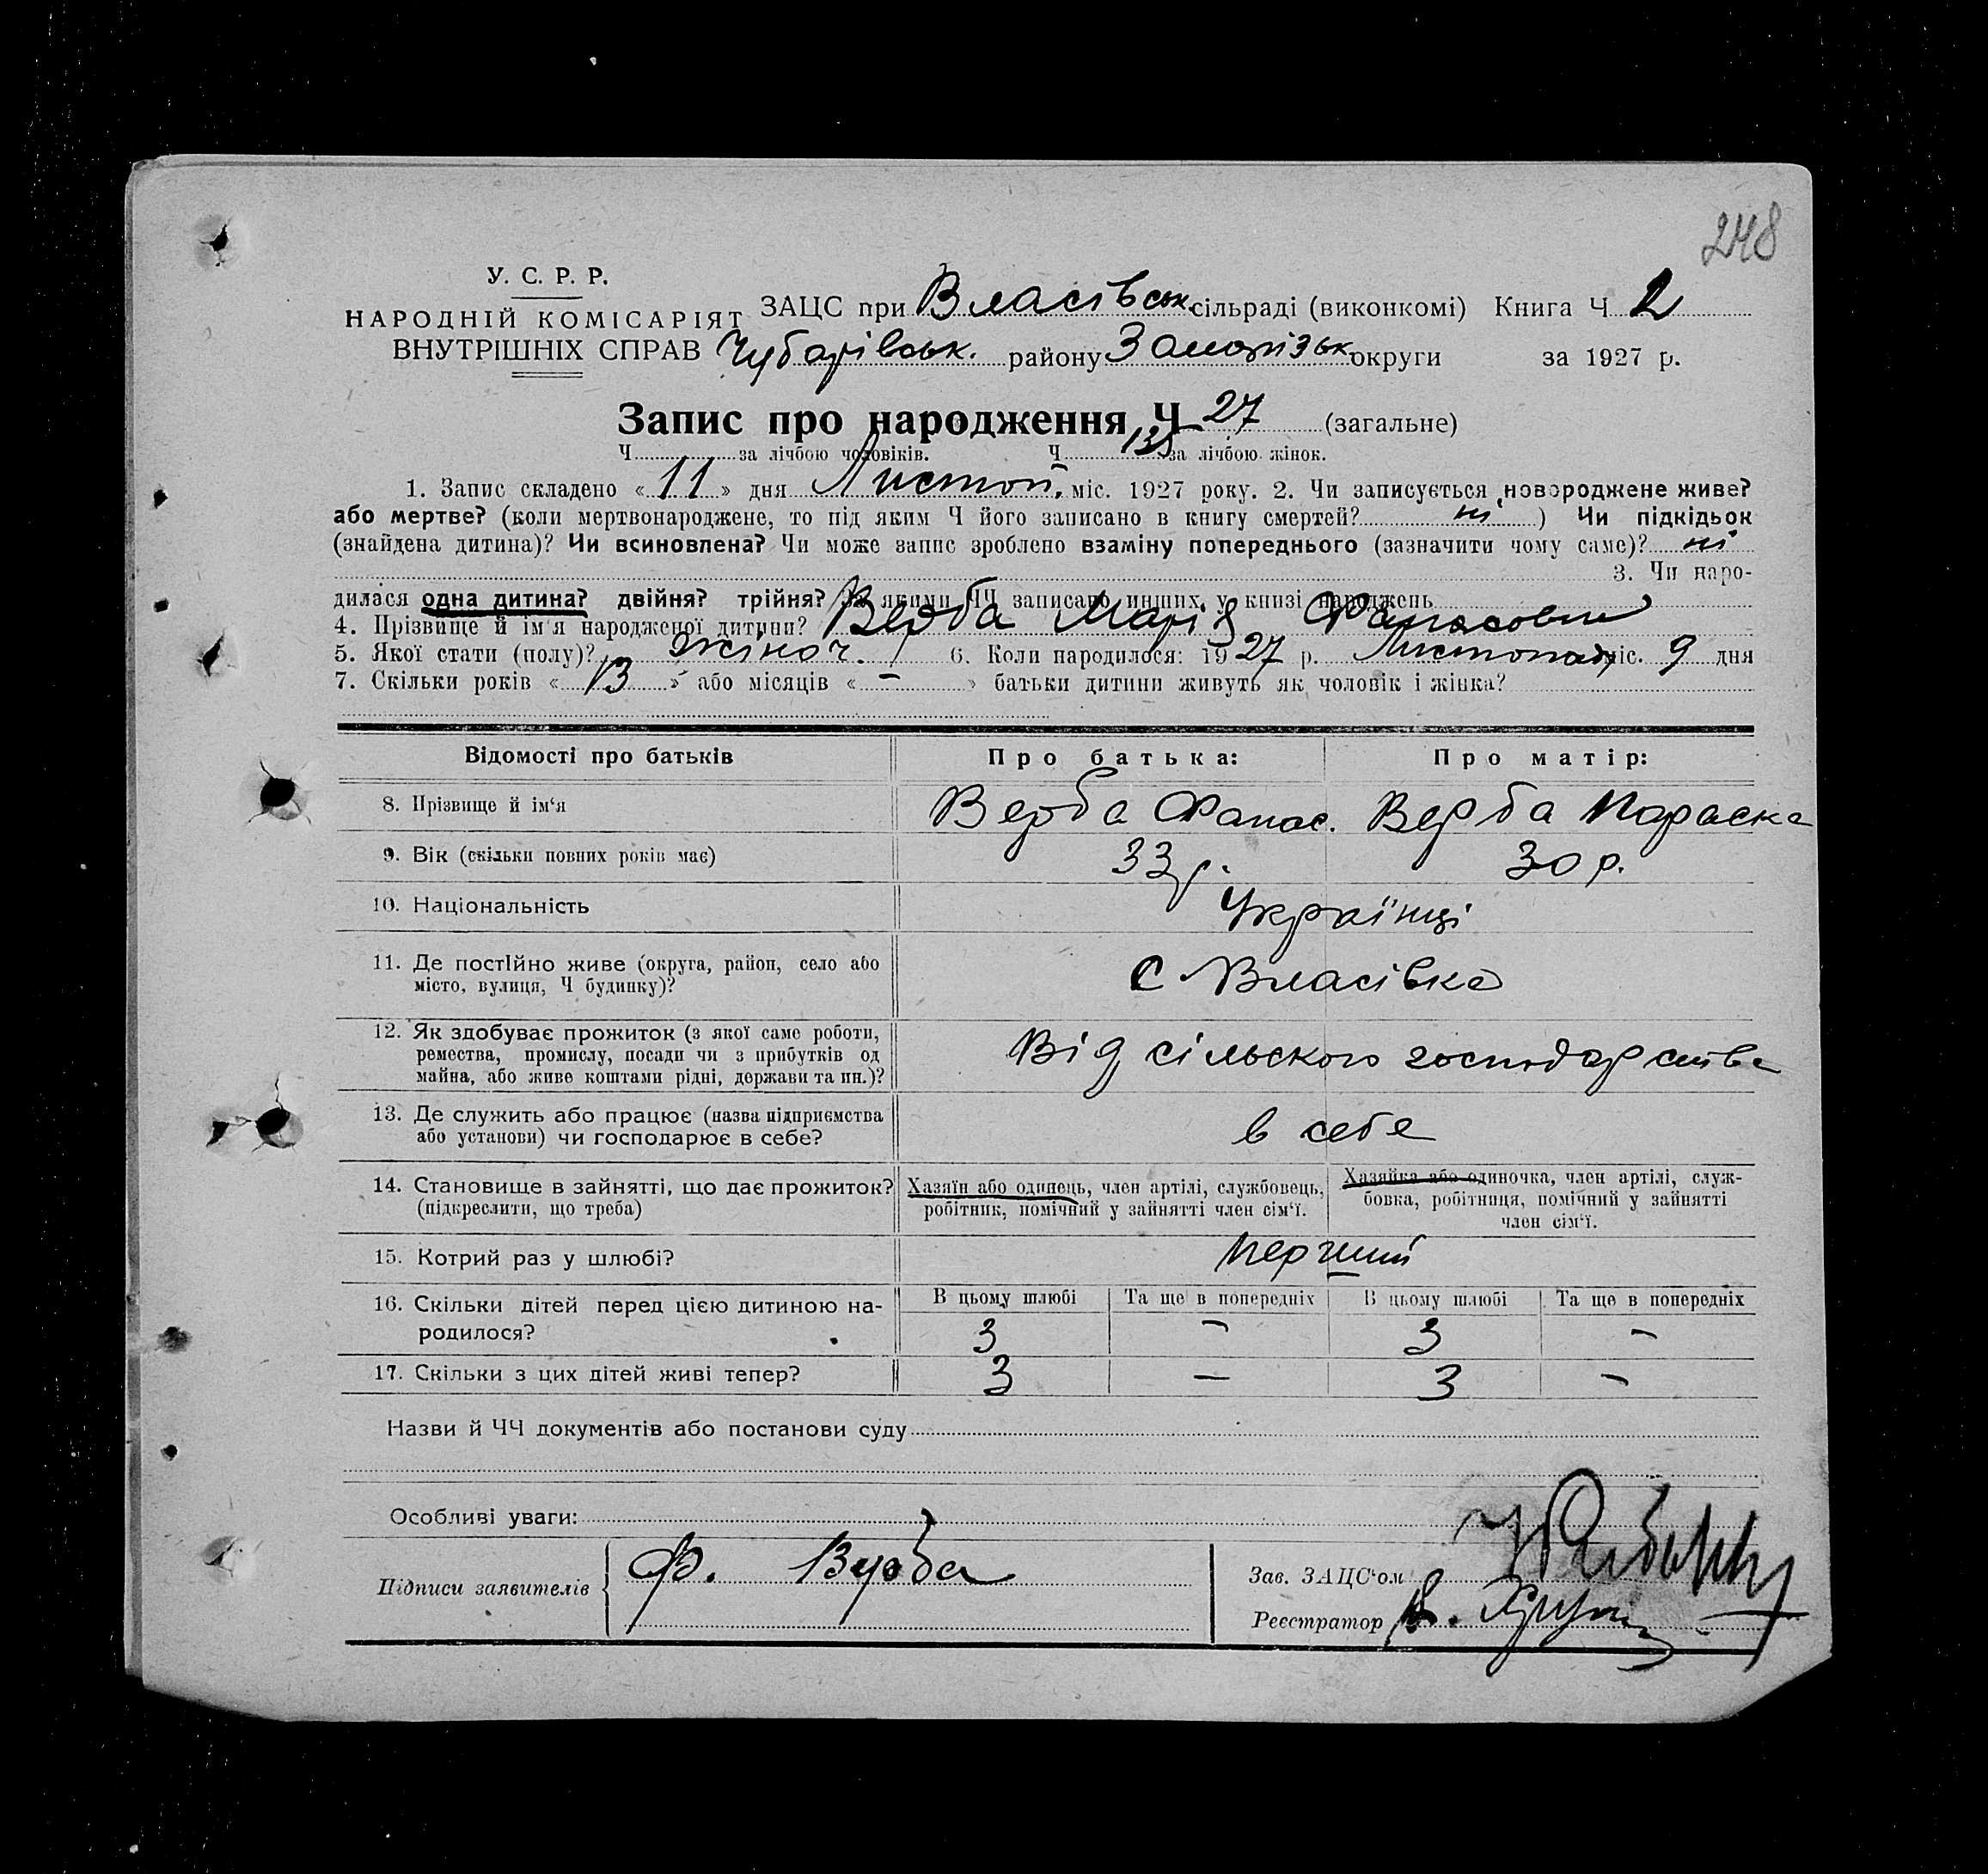 248
У. С. Р. Р.
НАРОДНІЙ КОМІСАРІЯТ
ВНУТРІШНІХ СПРАВ
ЗАЦС при Власівськ. сільраді (виконкомі) Книга Ч 2
Чубарівськ. району Запорізьк. округи за 1927 р.
Запис про народження Ч 27 (загальне)
Ч за лічбою чоловіків. Ч 13 за лічбою жінок.
1. Запис складено « 11 » дня Листоп. міс. 1927 року. 2. Чи записується новороджене живе?
або мертве? (коли мертвонароджене, то під яким Ч його записано в книгу смертей? ні ) Чи підкідьок
(знайдена дитина)? Чи всиновлена? Чи може запис зроблено взаміну попереднього (зазначити чому саме)? ні
3. Чи наро-
дилася одна дитина? двійня? трійня? За якими ЧЧ записано инших у книзі народжень
4. Прізвище й ім'я народженої дитини? Верба Марія Фанасовна
5. Якої стати (полу)? жіноч. 6. Коли народилося: 1927 р. Листопаду міс. 9 дня
7. Скільки років « 13 » або місяців « – » батьки дитини живуть як чоловік і жінка?
Відомості про батьків Про батька: Про матір:
8. Прізвище й ім'я Верба Фанас. Верба Параска
9. Вік (скільки повних років має) 33 р. 30 р.
10. Національність Українці
11. Де постійно живе (округа, район, село або
місто, вулиця, Ч будинку)? С Власівка
12. Як здобуває прожиток (з якої саме роботи,
ремества, промислу, посади чи з прибутків од
майна, або живе коштами рідні, держави та ин.)? Від сільского господарства
13. Де служить або працює (назва підприємства
або установи) чи господарює в себе? в себе
14. Становище в зайнятті, що дає прожиток?
(підкреслити, що треба)
Хазяїн або одинець, член артілі, службовець,
робітник, помічний у зайнятті член сім'ї.
Хазяйка або одиночка, член артілі, служ-
бовка, робітниця, помічний у зайнятті
член сім'ї.
15. Котрий раз у шлюбі? перший
16. Скільки дітей перед цією дитиною на-
родилося?
В цьому шлюбі Та ще в попередніх В цьому шлюбі Та ще в попередніх
3 – 3 –
17. Скільки з цих дітей живі тепер? 3 – 3 –
Назви й ЧЧ документів або постанови суду
Особливі уваги:
Підписи заявителів Ф. Верба
Зав. ЗАЦС'ом
Реєстратор